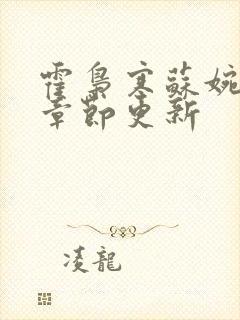 霍梟寒蘇婉
章節更新
凌龍